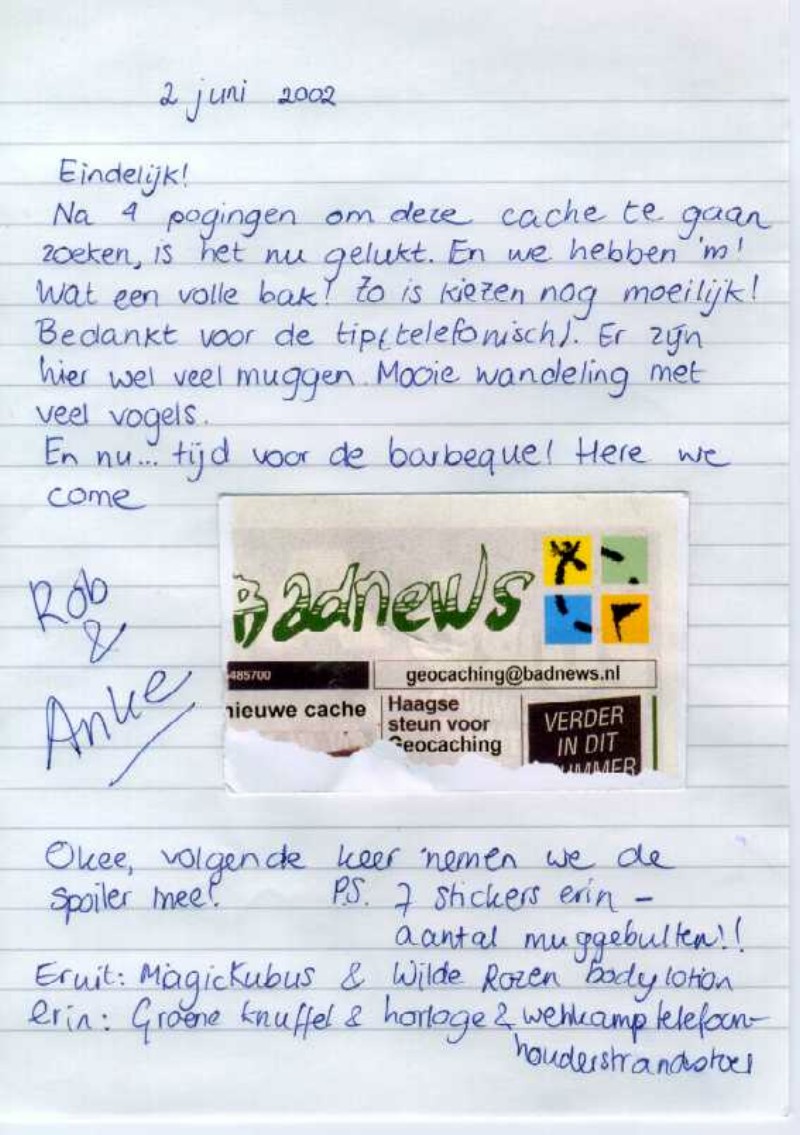 2 juni 2002
Eindelijk!
Na 4 pogingen om deze cache te gaan
zoeken, is het nu gelukt. En we hebben 'm!
Wat een volle bak! Zo is kiezen nog moeilijk!
Bedankt voor de tip(telefonisch). Er zijn
hier wel veel muggen. Mooie wandeling met
veel vogels.
En nu... tijd voor de barbeque! Here we
come
Rob
&
Anke
Badnews
485700
geocaching@badnews.nl
nieuwe cache
Haagse
steun voor
Geocaching
VERDER
IN DIT
NUMMER
Okee, volgende keer nemen we de
spoiler mee!
P.S. 7 stickers erin -
aantal muggebulten!!
Eruit: MagicKubus & Wilde Rozen bodylotion
erin: Groene knuffel & horloge & wehkamp telefoon-
houderstrandstoel